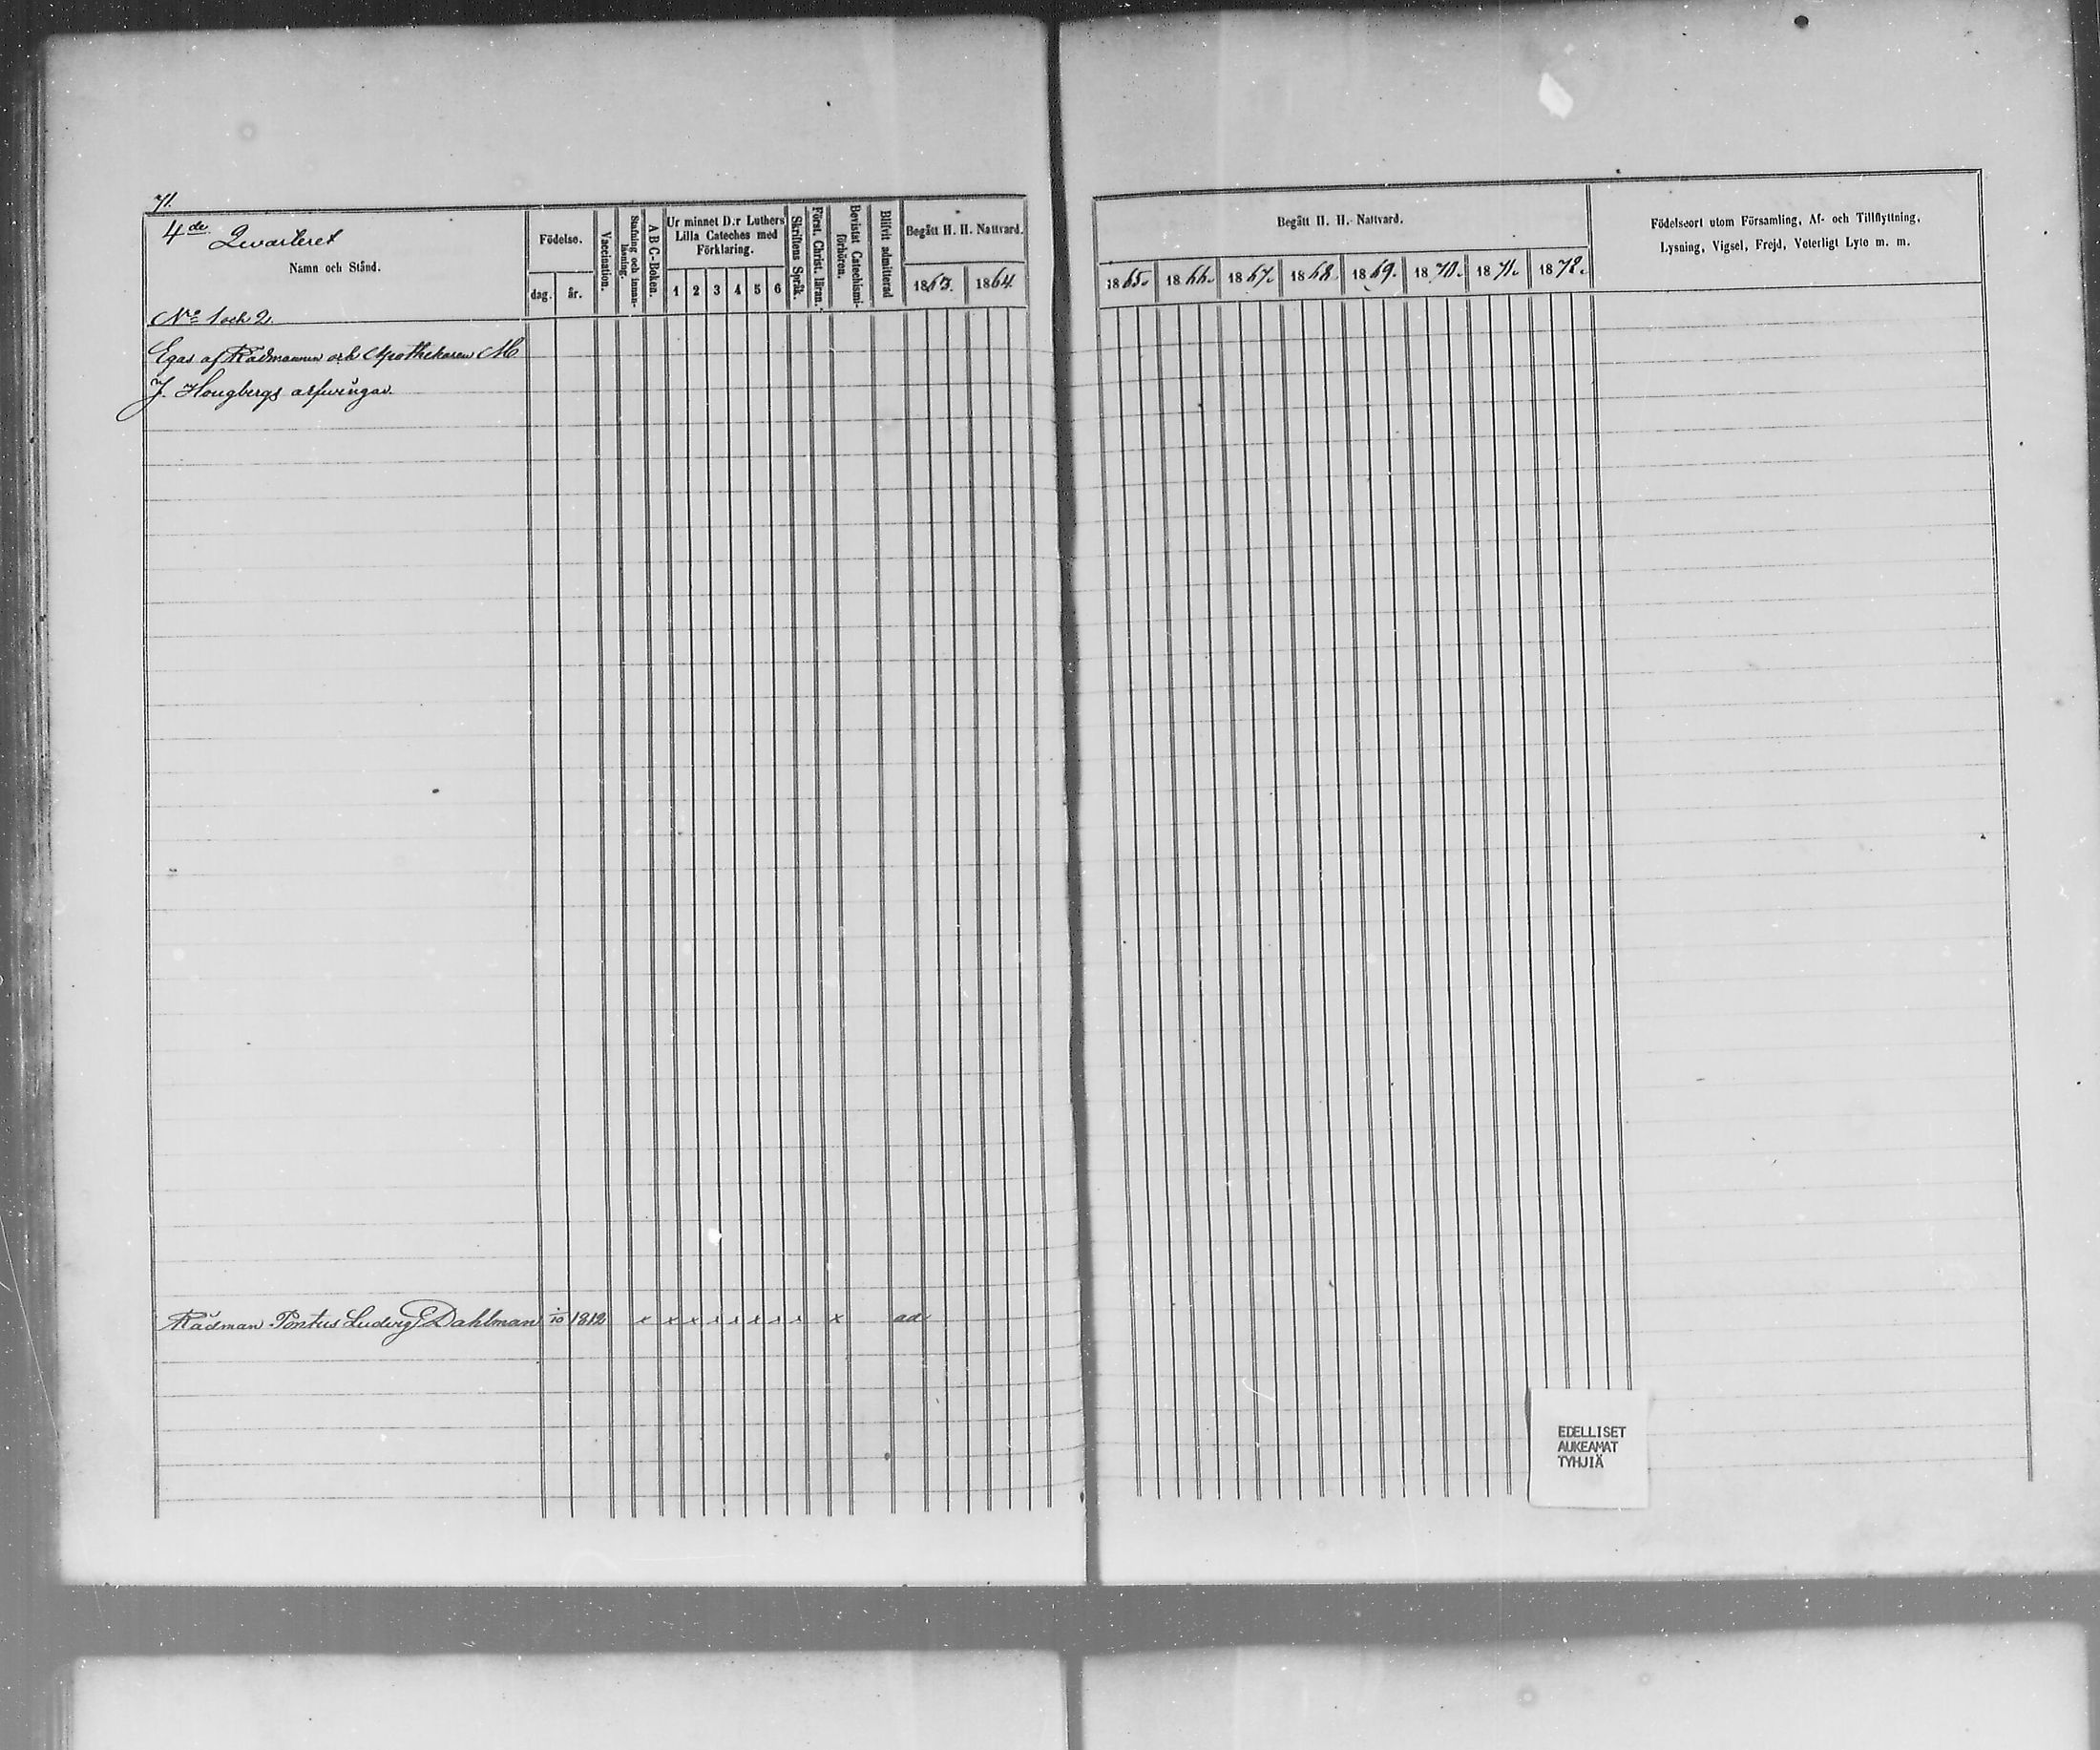 71.
4de Qvarteret
Namn och Stånd.
Födelse.
dag.
år.
Vaccination.
Stafning och innanläsning.
A B C-Boken.
Ur minnet D:r Luthers
Lilla Cateches med
Förklaring.
1 2 3 4 5 6
Skriftens Språk.
Först. Christ. läran.
Bevistat Catechismiförhören.
Blifvit admitterad
Begått H. H. Nattvard.
1863. 1864.
Begått H. H. Nattvard.
1865. 1866. 1867. 1868. 1869. 1870. 1871. 1872.
Födelseort utom Församling, Af- och Tillflyttning,
Lysning, Vigsel, Frejd, Veterligt Lyte m. m.
No 1 och 2.
Egas af Rådmannen och Apothekaren
J. Hougbergs arfvingar.
Rådman Pontus Ludvig Dahlman 1/10 1812 x x x x x x x x x ad
EDELLISET
AUKEAMAT
TYHJIÄ